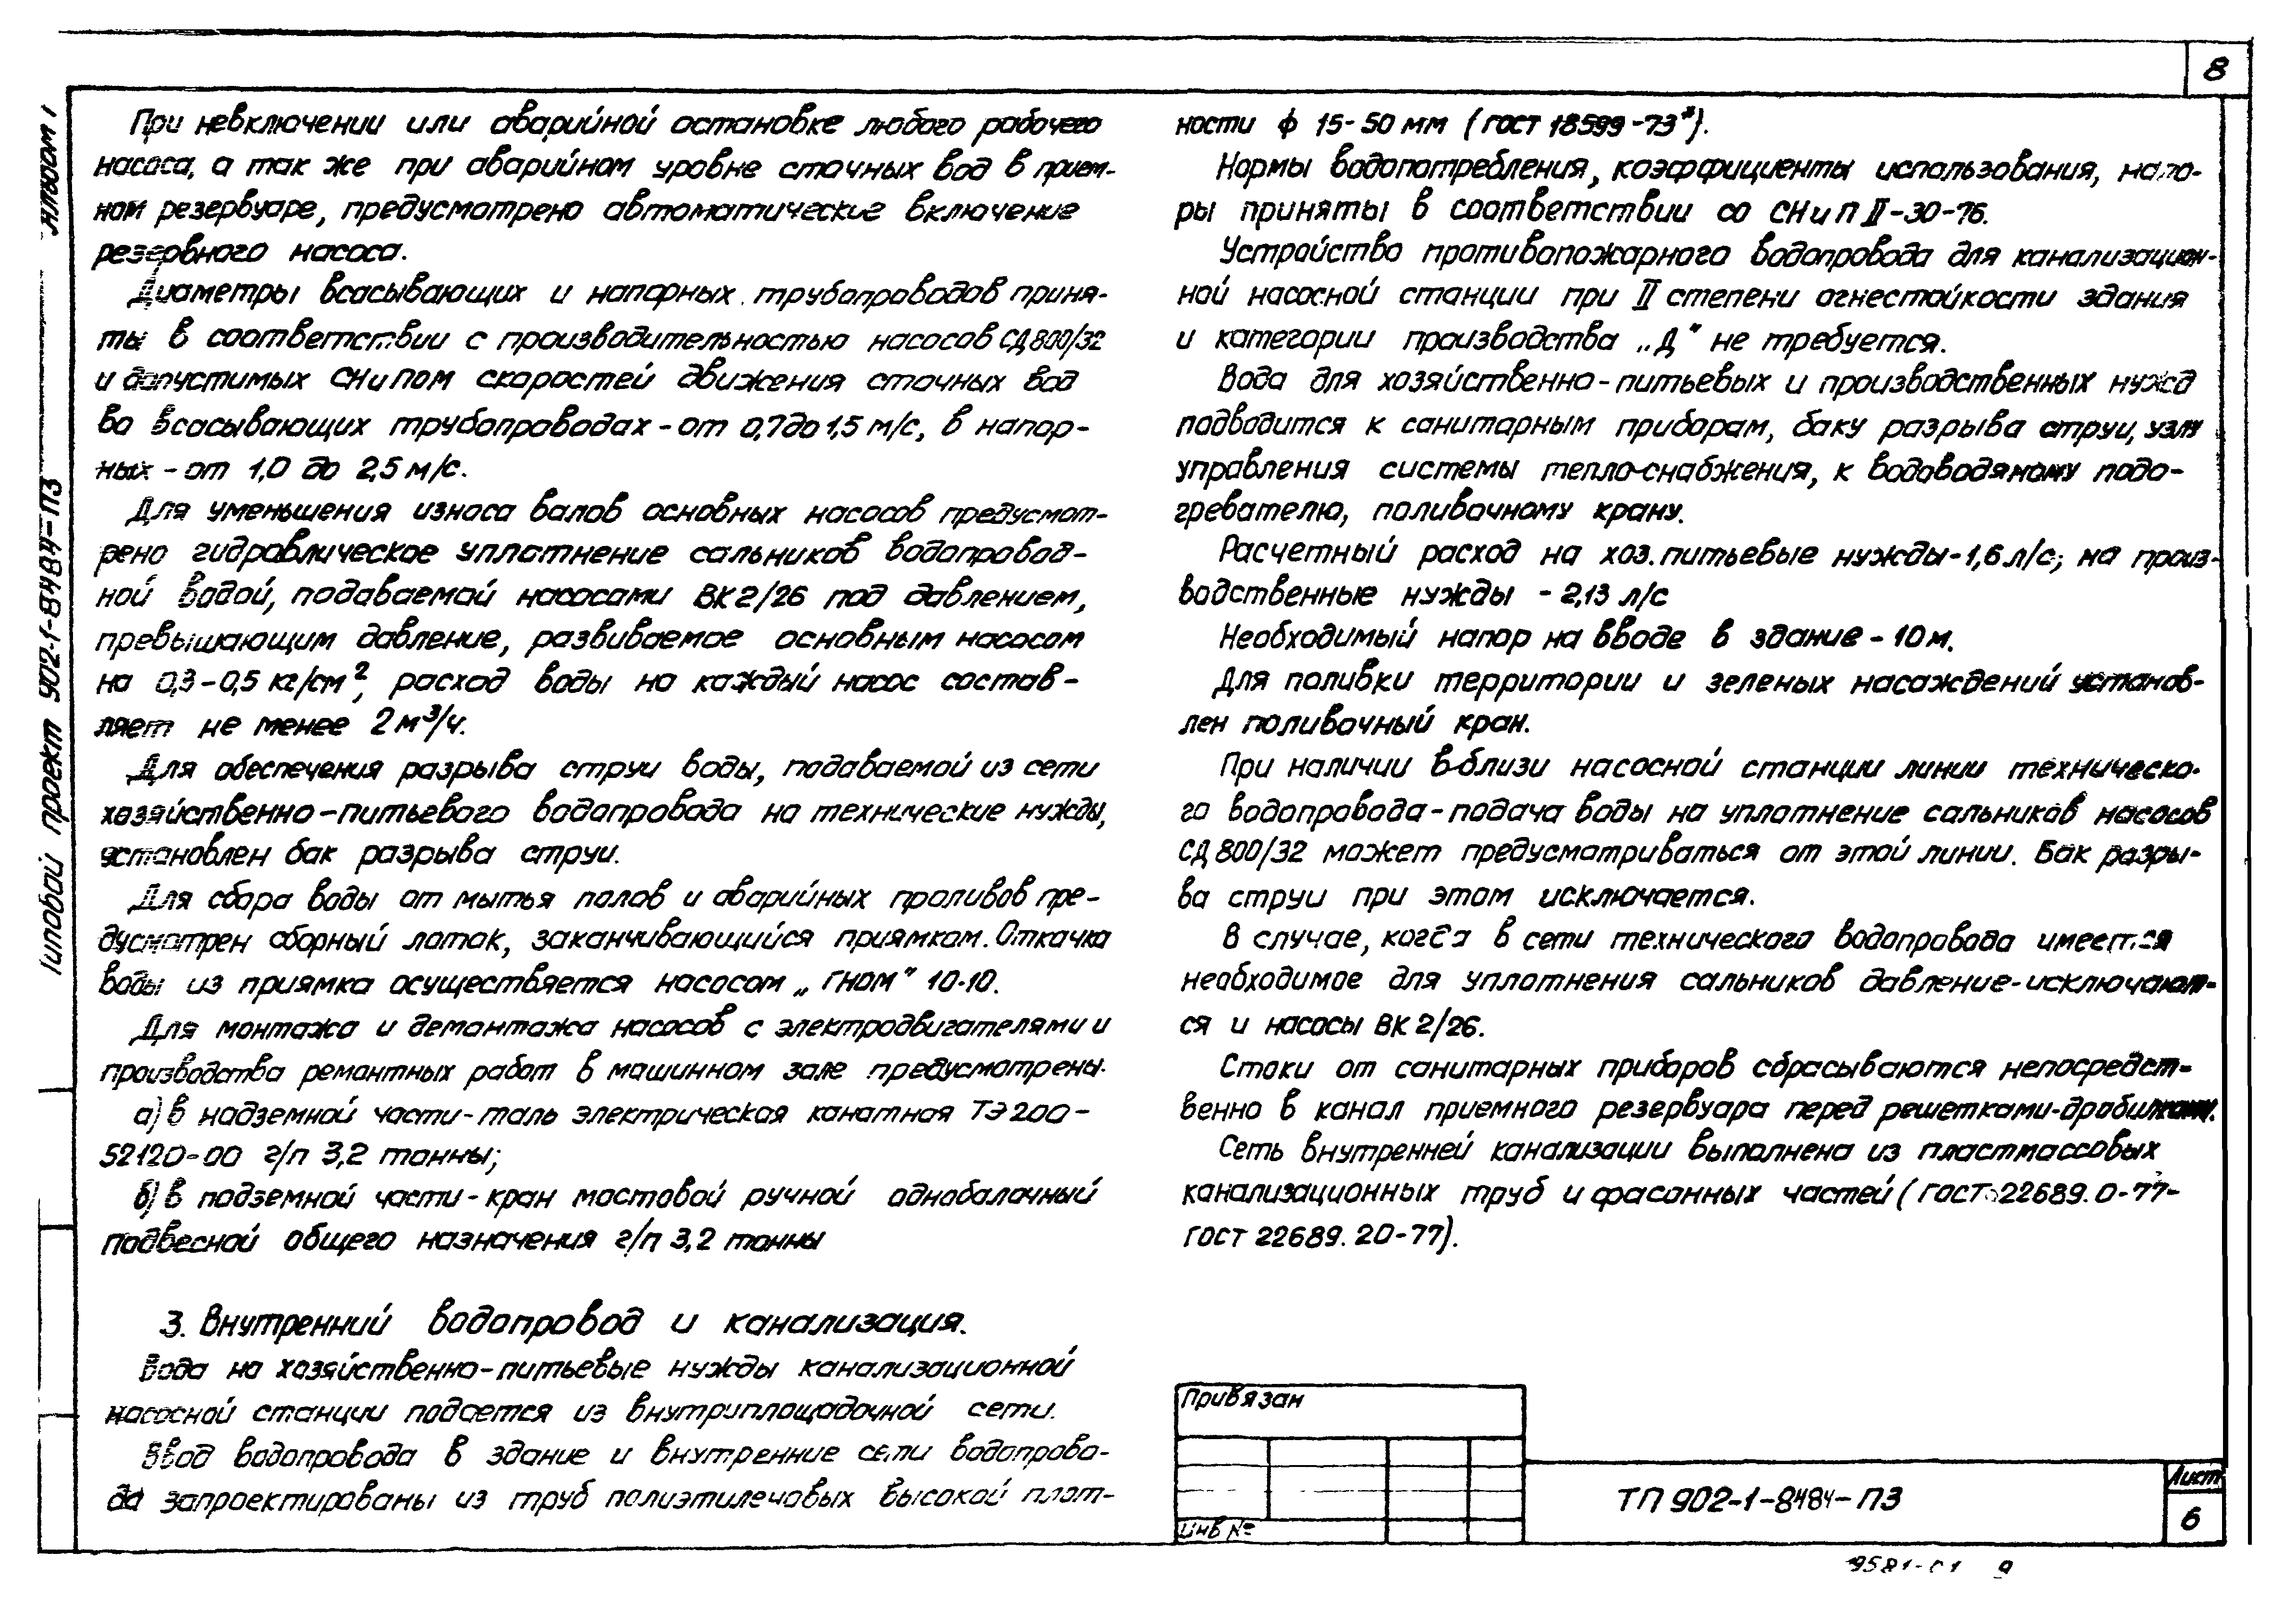 8
Альбом 1
Типовой проект 902-1-84.84-ПЗ
При невключении или аварийной остановке любого рабочего
насоса, а так же при аварийном уровне сточных вод в прием-
ном резервуаре, предусмотрено автоматические включение
резервного насоса.
Диаметры всасывающих и напорных трубопроводов приня-
ты в соответствии с производительностью насосов СД 800/32
и допустимых СНиПом скоростей движения сточных вод
во всасывающих трубопроводах - от 0,7 до 1,5 м/с, в напор-
ных - от 1,0 до 2,5 м/с.
Для уменьшения износа валов основных насосов предусмот-
рено гидравлическое уплотнение сальников водопровод-
ной водой, подаваемой насосами ВК 2/26 под давлением,
превышающим давление, развиваемое основным насосом
на 0,3-0,5 кг/см², расход воды на каждый насос состав-
ляет не менее 2 м³/ч.
Для обеспечения разрыва струи воды, подаваемой из сети
хозяйственно-питьевого водопровода на технические нужды,
установлен бак разрыва струи.
Для сбора воды от мытья полов и аварийных проливов пре-
дусмотрен сборный лоток, заканчивающийся приямком. Откачка
воды из приямка осуществяется насосом „ГНОМ" 10-10.
Для монтажа и демонтажа насосов с электродвигателями и
производства ремонтных работ в машинном зале предусмотрены:
а) в надземной части - таль электрическая канатная ТЭ 200-
52120-00 г/п 3,2 тонны;
б) в подземной части - кран мостовой ручной однобалочный
подвесной общего назначения г/п 3,2 тонны
3. Внутренний водопровод и канализация.
Вода на хозяйственно-питьевые нужды канализационной
насосной станции подается из внутриплощадочной сети.
Ввод водопровода в здание и внутренние сети водопрово-
да запроектированы из труб полиэтиленовых высокой плот-
ности ф 15-50 мм (ГОСТ 18599-73*).
Нормы водопотребления, коэффициенты использования, напо-
ры приняты в соответствии со СНиП II-30-76.
Устройство противопожарного водопровода для канализацион-
ной насосной станции при II степени огнестойкости здания
и категории производства „Д" не требуется.
Вода для хозяйственно-питьевых и производственных нужд
подводится к санитарным приборам, баку разрыва струи, узлу
управления системы тепло-снабжения, к водоводяному подо-
гревателю, поливочному крану.
Расчетный расход на хоз. питьевые нужды - 1,6 л/с; на произ-
водственные нужды - 2,13 л/с
Необходимый напор на вводе в здание - 10 м.
Для поливки территории и зеленых насаждений установ-
лен поливочный кран.
При наличии вблизи насосной станции линии техническо-
го водопровода - подача воды на уплотнение сальников насосов
СД 800/32 может предусматриваться от этой линии. Бак разры-
ва струи при этом исключается.
В случае, когда в сети технического водопровода имеется
необходимое для уплотнения сальников давление - исключают-
ся и насосы ВК 2/26.
Стоки от санитарных приборов сбрасываются непосредст-
венно в канал приемного резервуара перед решетками-дробилками.
Сеть внутренней канализации выполнена из пластмассовых
канализационных труб и фасонных частей (ГОСТ 22689.0-77-
ГОСТ 22689.20-77).
Привязан
Инв №
ТП 902-1-84.84-ПЗ
Лист
6
9